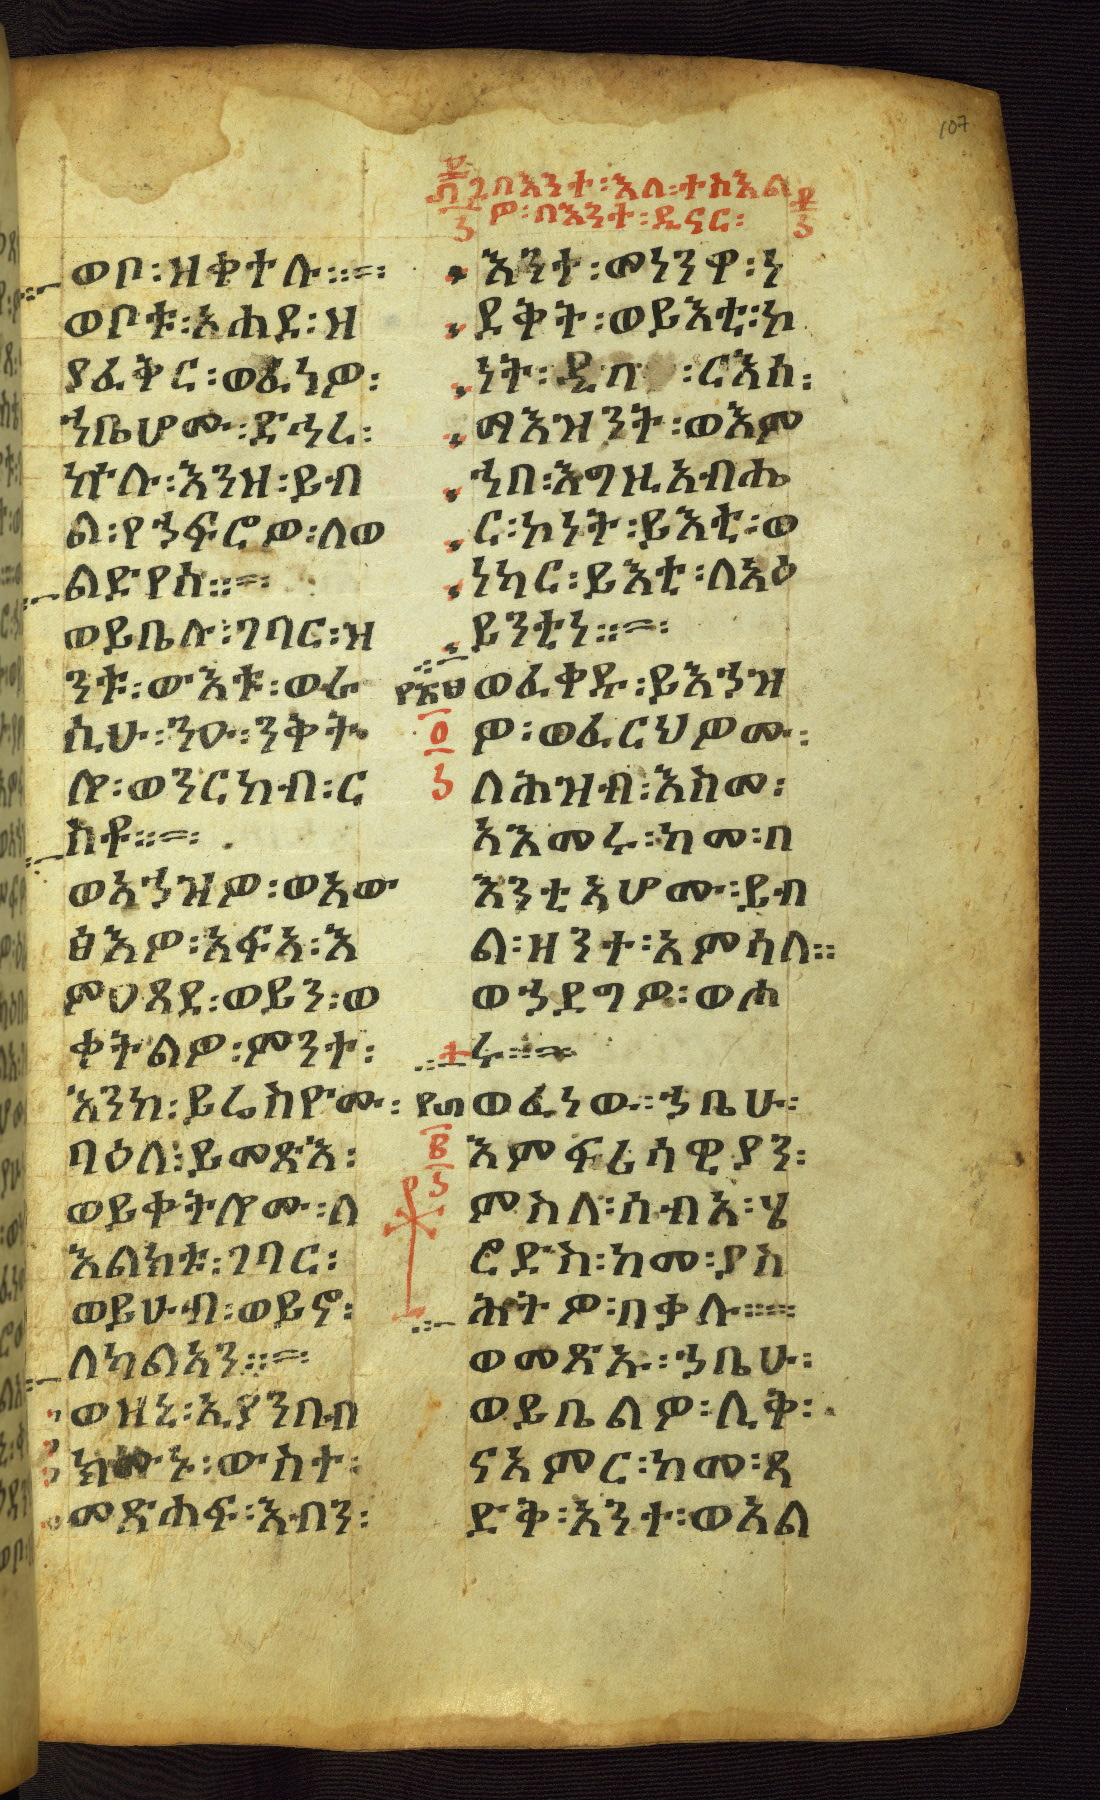 107
፶፪ በእንተ፡እለ፡ተስእል
ዎ፡በእንተ፡ዲናር፡
ወቦ፡ዝቀተሉ።=፡
ወቦቱ፡አሐደ፡ዘ
ያፈቅር፡ወፈነዎ፡
ኀቤሆሙ፡ድኅረ፡
ኵሉ፡እንዘ፡ይብ
ል፡የኀፍሮዎ፡ለወ
ልድየሰ።=፡
ወይቤሉ፡ገባር፡ዝ
ንቱ፡ውእቱ፡ወራ
ሲሁ፡ንዑ፡ንቅት
ሎ፡ወንርከብ፡ር
ስቶ።=፡
ወአኀዝዎ፡ወአው
ፅእዎ፡አፍአ፡እ
ምዐጸደ፡ወይን፡ወ
ቀትልዎ፡ምንተ፡
እንከ፡ይሬስዮሙ፡
ባዕለ፡ይመጽእ፡
ወይቀትሎሙ፡ለ
እልክቱ፡ገባር፡
ወይሁብ፡ወይኖ፡
ለካልአን።=፡
ወዝኒ፡ኢያንበብ
ክሙኑ፡ውስተ፡
መጽሐፍ፡እብን፡
እንተ፡መነንዋ፡ነ
ደቅት፡ወይእቲ፡ከ
ነት፡ዲበ፡ርእሰ፡
ማእዝንት፡ወእም
ኀበ፡እግዚአብሔ
ር፡ኮነት፡ይእቲ፡ወ
ነካር፡ይእቲ፡ለአዕ
ይንቲነ።=፡
ወፈቀዱ፡ይእኀዝ
ዎ፡ወፈርህዎሙ፡
ለሕዝብ፡እስመ፡
አእመሩ፡ከመ፡በ
እንቲአሆሙ፡ይብ
ል፡ዘንተ፡አምሳለ።
ወኀደግዎ፡ወሖ
ሩ።=
ወፈነው፡ኀቤሁ፡
እምፍሪሳዊያን፡
ምስለ፡ሰብአ፡ሄ
ሮድስ፡ከመ፡ያስ
ሕትዎ፡በቃሉ።=
ወመጽኡ፡ኀቤሁ፡
ወይቤልዎ፡ሊቅ፡
ናአምር፡ከመ፡ጻ
ድቅ፡አንተ፡ወአል